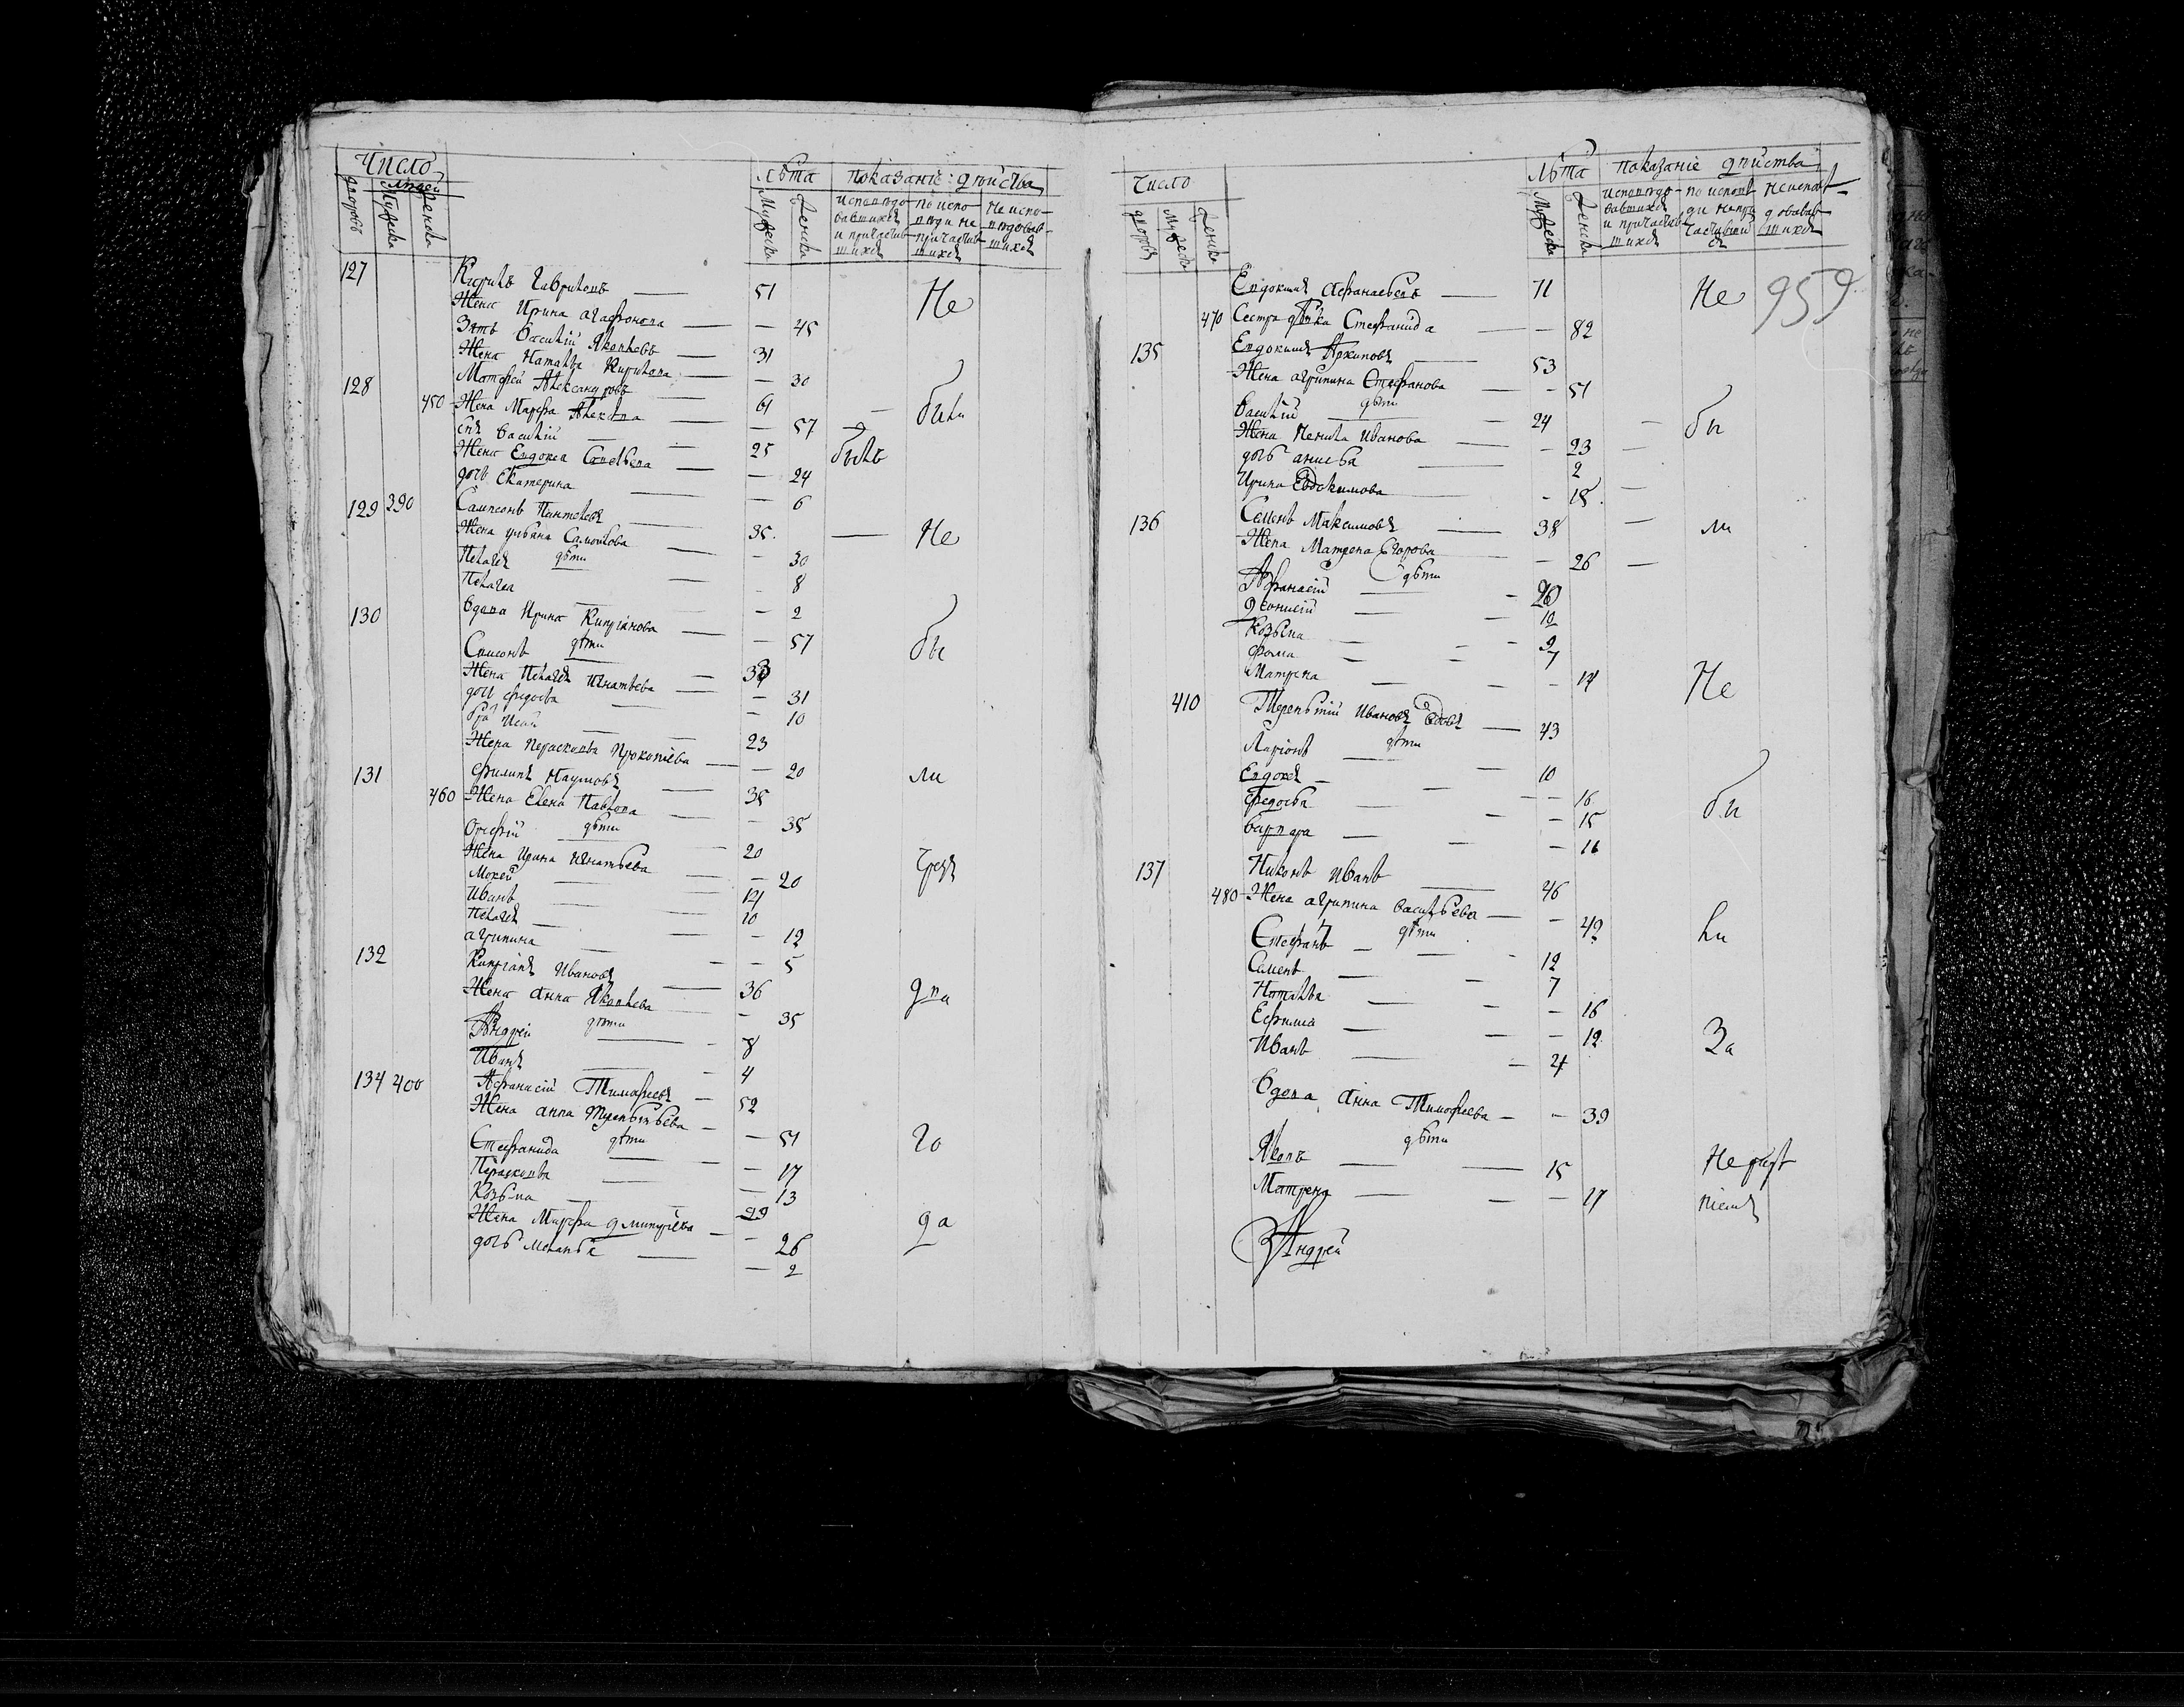 Число
людей
дворовъ
Мужеска
Женска
Лѣта
Мужеска
Женска
показаніе дѣйства
исповѣдовавшихся и причастившихся
по исповѣди не причастившихся
не исповѣдовавшихся
127 Кирилъ Гавриловъ — 51 Не
Жена Ирина Агафонова — — 45
Зять Василій Яковлевъ — 31
Жена Наталья Кирилова — — 30
128 Матфей Александровъ — 61
450 Жена Марфа — — 57 были
сынъ Василій — 25 былъ
Жена Евдокея Савельева — — 24
дочь Екатерина — — 6
129 390 Сампсонъ Пантелеевъ — 35 Не
Жена Ульяна Самойлова — — 30
дѣти
Пелагея — 8
Пелагея — 2
130 Вдова Ирина Кипріанова — — 57 бы
дѣти
Самсонъ — 33
Жена Пелагея Игнатьева — — 31
дочь Федосья — 10
братъ Исай — 23
Жена Парасковья Прокопіева — — 20
131 Филипъ Наумовъ — 35 ли
460 Жена Елена Павлова — — 35
дѣти
Орефій — 20
Жена Ирина Игнатьева — — 20 чрезъ
Мокей — 14
Иванъ — 10
Пелагея — — 12
Агрипина — — 5
132 Кипріанъ Ивановъ — 36
Жена Анна Яковлева — — 35 два
дѣти
Андрей — 8
Иванъ — 4
134 400 Афанасій Тимофеевъ — 52
Жена Анна Терентьева — — 51 го
дѣти
Стефанида — — 17
Парасковья — — 13
Козьма — 29
Жена Марфа Дмитріева — — 26 да
дочь Меланья — — 2
Число
дворовъ
Мужеска
Женска
Лѣта
Мужеска
Женска
показаніе дѣйства
исповѣдовавшихся и причастившихся
по исповѣди не причастившихся
не исповѣдовавшихся
959
Евдокимъ Афанасьевъ — 71 Не
470 Сестра дѣвка Стефанида — — 82
135 Евдокимъ Архиповъ — 53
Жена Агрипина Стефанова — — 51
дѣти
Василій — 24 бы
Жена Ненила Иванова — — 23
дочь Анисья — 2
Ирина Евдокимова — 18
136 Семенъ Максимовъ — 38 ли
Жена Матрена Егорова — 26
дѣти
Афанасій — 20
Діонисій — 10
Козьма — 9
Фома — 7
Матрена — — 14 Не
410 Терентій Ивановъ вдовъ — 43
дѣти
Ларіонъ — 10
Евдокея — — 16
Федосья — — 15 бы
Варвара — — 11
137 Никонъ Иванъ — 46
480 Жена Агрипина Васильева — — 42
дѣти
Стефанъ — 12 ли
Семенъ — 7
Наталья — — 16
Ефимія — — 12
Иванъ — 4 За
Вдова Анна Тимофеева — — 39
дѣти
Яковъ — 15 Нерад
Матрена — — 17 ніемъ
Андрей